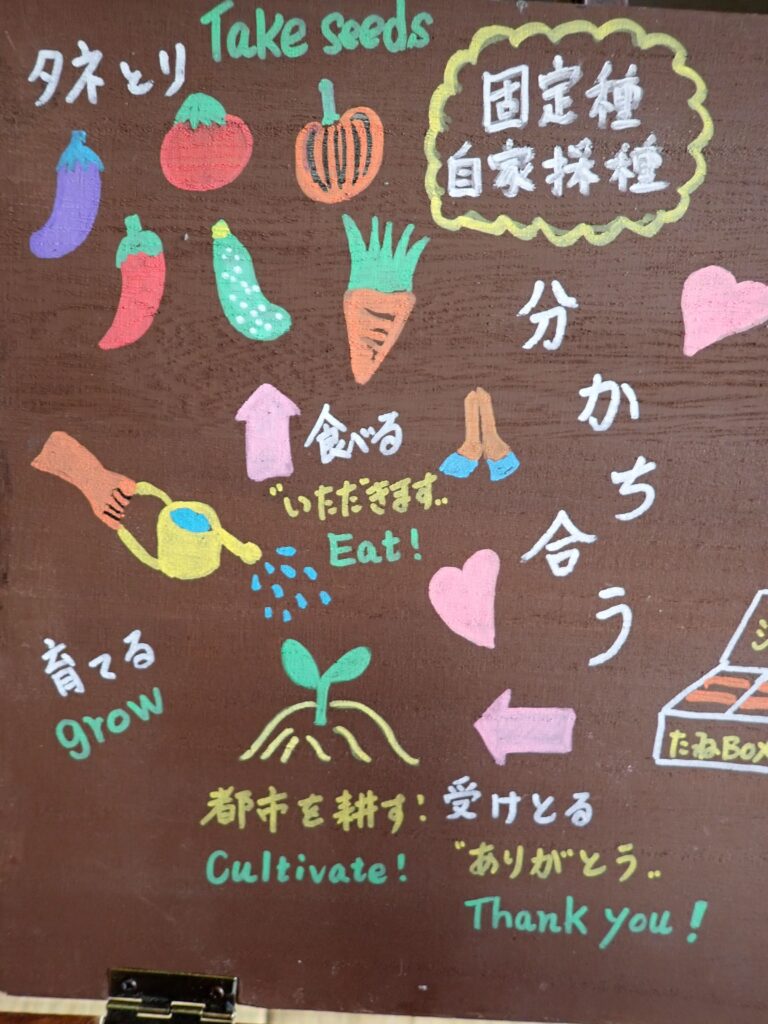 Take seeds
タネとり
固定種
自家採種
分かち合う
食べる
"いただきます"
Eat!
育てる
grow
たねBOX
都市を耕す:
Cultivate!
受けとる
"ありがとう"
Thank you!